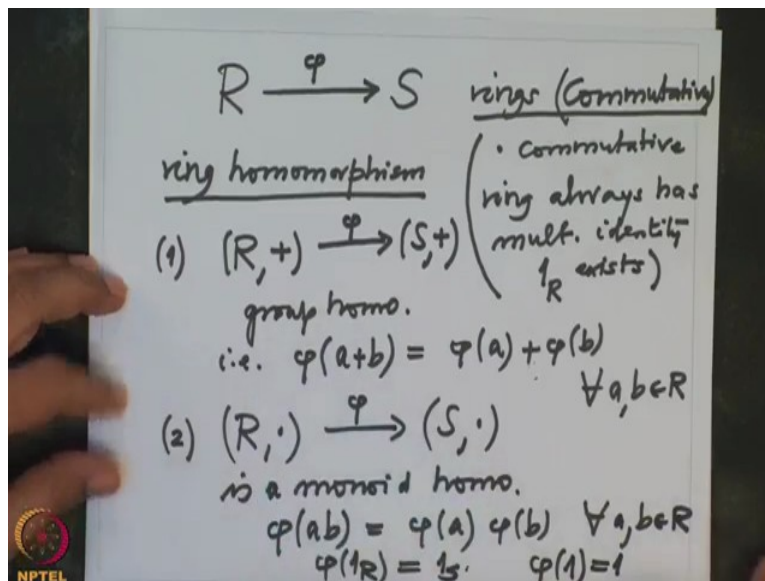 R --φ--> S rings (Commutative)
ring homomorphism
( · commutative
ring always has
mult. identity
1_R exists )
(1) (R,+) --φ--> (S,+)
group homo.
i.e. φ(a+b) = φ(a)+φ(b)
∀a,b∈R
(2) (R,·) --φ--> (S,·)
is a monoid homo.
φ(ab) = φ(a) φ(b) ∀a,b∈R
φ(1_R) = 1_S. φ(1)=1
NPTEL